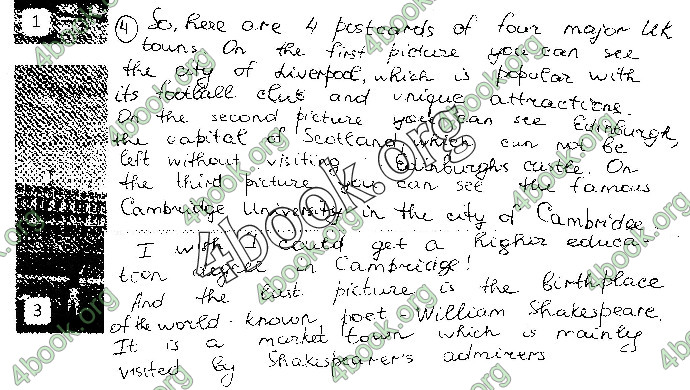 1
4 So, here are 4 postcards of four major UK
towns. On the first picture you can see
the city of Liverpool, which is popular with
its football club and unique attractions.
On the second picture you can see Edinburgh,
the capital of Scotland which can not be
left without visiting Edinburghs castle. On
the third picture you can see the famous
Cambridge University in the city of Cambridge.
I wish I could get a higher educa-
tion degree in Cambridge!
And the last picture is the birthplace
3
of the world-known poet - William Shakespeare.
It is a market town which is mainly
visited by Shakespearer's admirers
4book.org